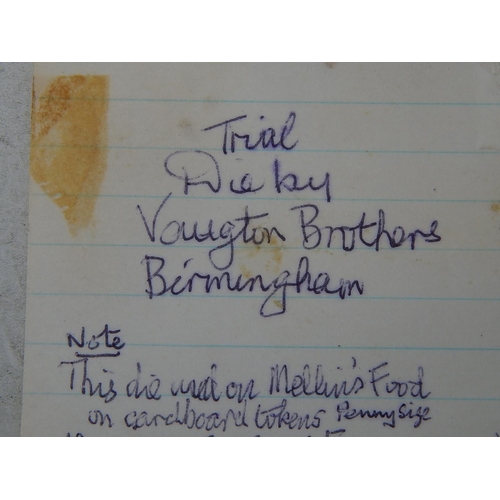 Trial
Die by
Vaugton Brothers
Birmingham
Note
This die used on Mellin's Food
on cardboard tokens Penny Size